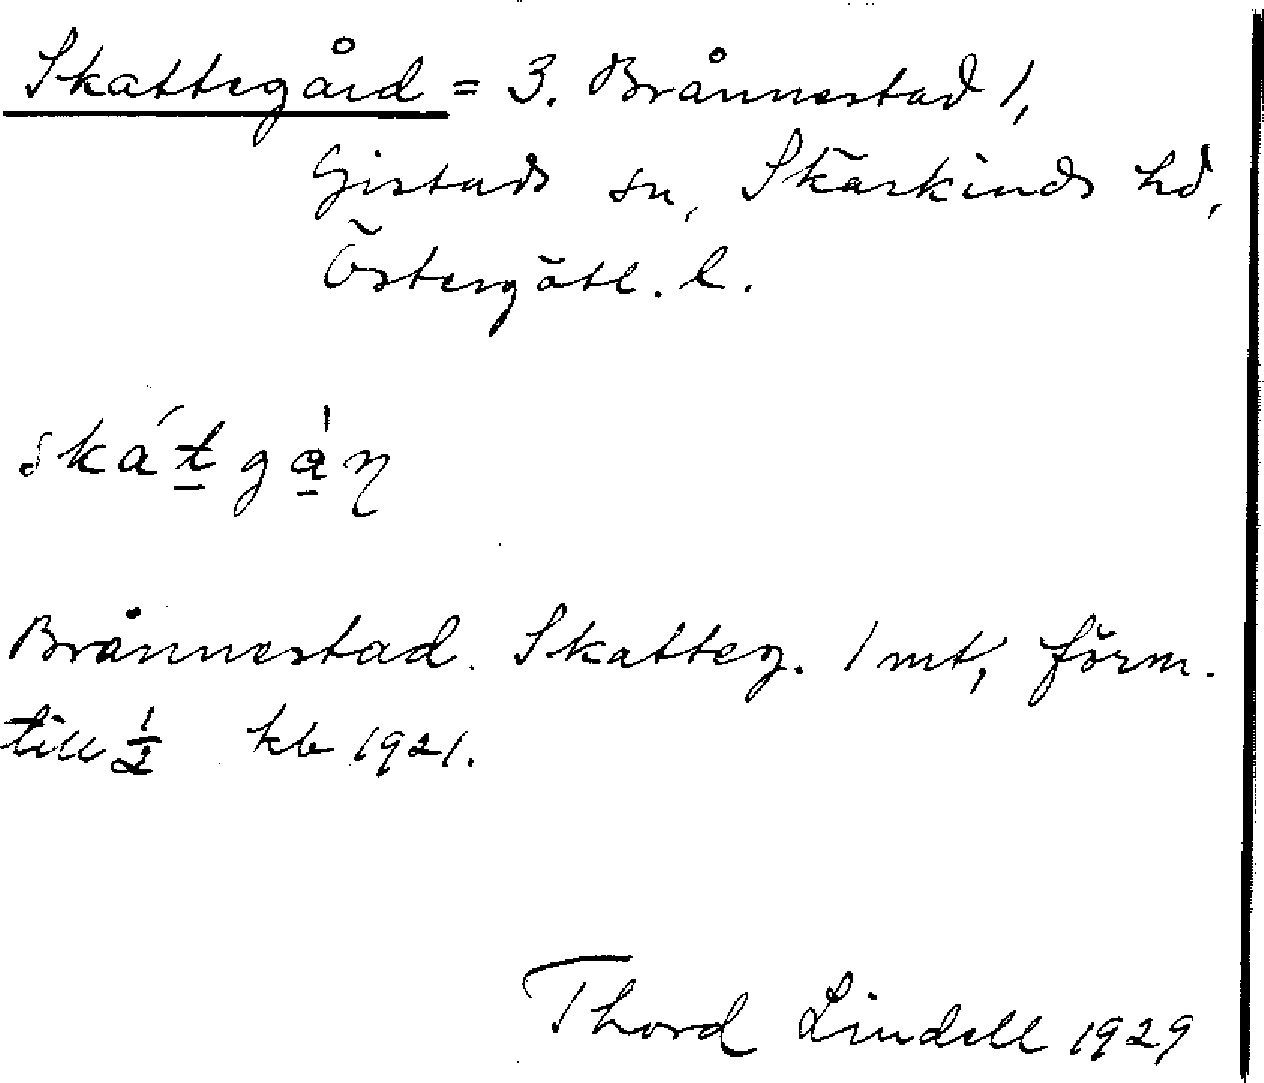 Skattegård = 3. Brånnestad 1,
Gistads sn, Skärkinds hd,
Östergötl. l.
skátgån
Brånnestad. Skatteg. 1 mt, förm.
till ½ kb 1921.
Thord Lindell 1929